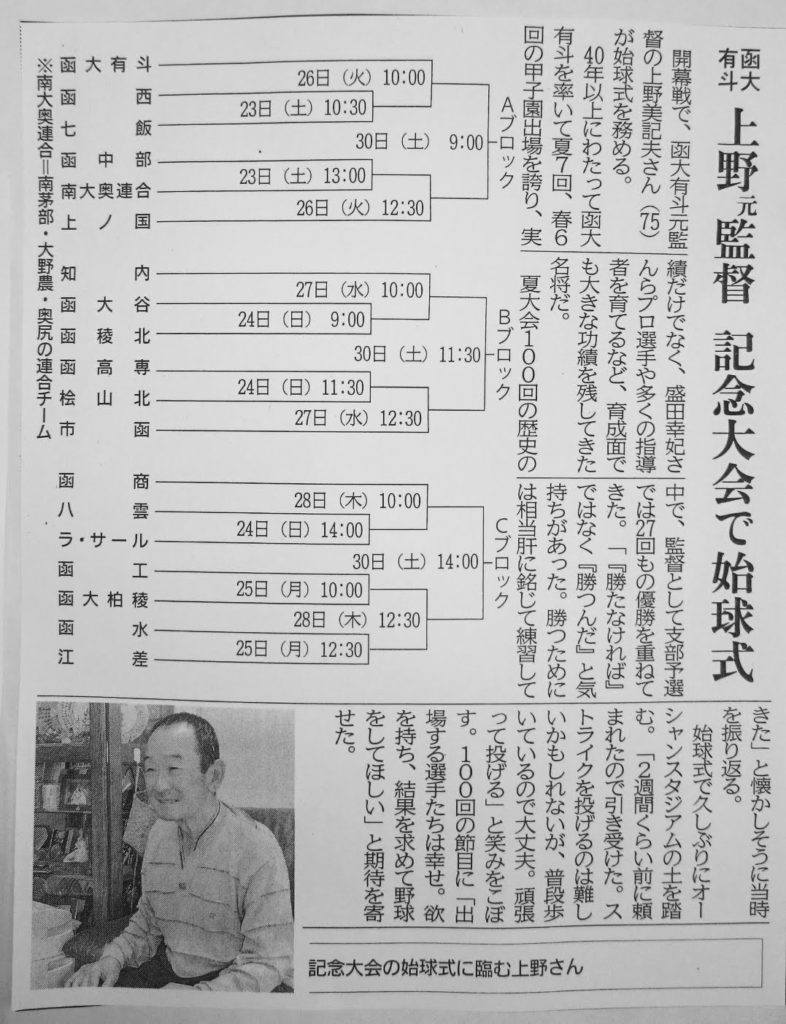 函大
有斗
上野元監督 記念大会で始球式
開幕戦で、函大有斗元監
督の上野美記夫さん(75)
が始球式を務める。
40年以上にわたって函大
有斗を率いて夏7回、春6
回の甲子園出場を誇り、実
績だけでなく、盛田幸妃さ
んらプロ選手や多くの指導
者を育てるなど、育成面で
も大きな功績を残してきた
名将だ。
夏大会100回の歴史の
中で、監督として支部予選
では27回もの優勝を重ねて
きた。「『勝たなければ』
ではなく『勝つんだ』と気
持ちがあった。勝つために
は相当肝に銘じて練習して
きた」と懐かしそうに当時
を振り返る。
始球式で久しぶりにオー
シャンスタジアムの土を踏
む。「2週間くらい前に頼
まれたので引き受けた。ス
トライクを投げるのは難し
いかもしれないが、普段歩
いているので大丈夫。頑張
って投げる」と笑みをこぼ
す。100回の節目に「出
場する選手たちは幸せ。欲
を持ち、結果を求めて野球
をしてほしい」と期待を寄
せた。
Aブロック
函大有斗
函西
七飯
函中部
南大奥連合
上ノ国
26日(火)10:00
23日(土)10:30
30日(土) 9:00
23日(土)13:00
26日(火)12:30
Bブロック
知内
函大谷
函稜北
函高専
桧山北
市函
27日(水)10:00
24日(日) 9:00
30日(土)11:30
24日(日)11:30
27日(水)12:30
Cブロック
函商
八雲
ラ・サール
函工
函大柏稜
函水
江差
28日(木)10:00
24日(日)14:00
30日(土)14:00
25日(月)10:00
28日(木)12:30
25日(月)12:30
※南大奥連合=南茅部・大野農・奥尻の連合チーム
記念大会の始球式に臨む上野さん